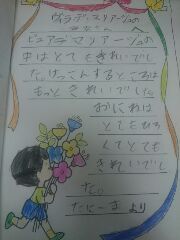 ヴィラ・デ・マリアージュの
みなさんへ
デマリアージュの
中はとてもきれいでし
た。けっこんするところは
もっときれいでした。
おにわは
とてもひろ
くてとても
きれいでし
た。
より